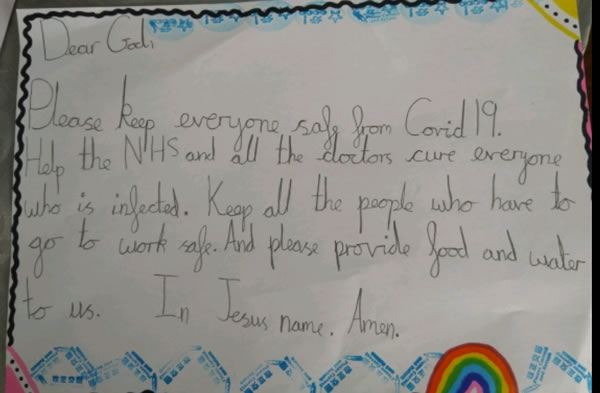 Dear God,
Please keep everyone safe from Covid 19.
Help the NHS and all the doctors cure everyone
who is infected. Keep all the people who have to
go to work safe. And please provide food and water
to us. In Jesus name. Amen.